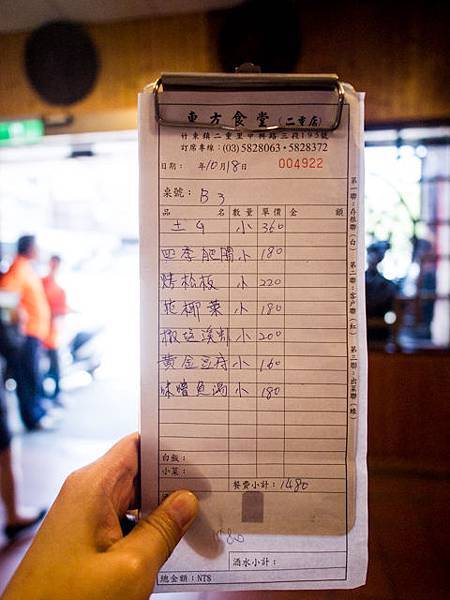 東方食堂(二重店)
竹東鎮二重里中興路三段195號
訂席專線:(03)5828063・5828372
日期: 年10月18日 004922
桌號: B3
品名 數量 單價 金額
土G 小 360
四季肥腸 小 180
烤松板 小 220
花椰菜 小 180
小 200
黃金豆府 小 160
味噌魚湯 小 180
白飯:
小菜:
餐費小計:1480
酒水小計:
總金額:NT$
第一聯:存根聯(白) 第二聯:客戶聯(紅) 第三聯:出菜聯(綠)